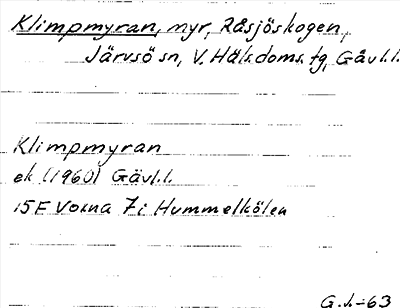 Klimpmyran, myr, Råsjöskogen,
Järvsö sn, V. Häls. doms. tg, Gävl. l.
Klimpmyran
ek (1960) Gävl. l.
15F Voxna 7i Hummelkölen
G. J. -63